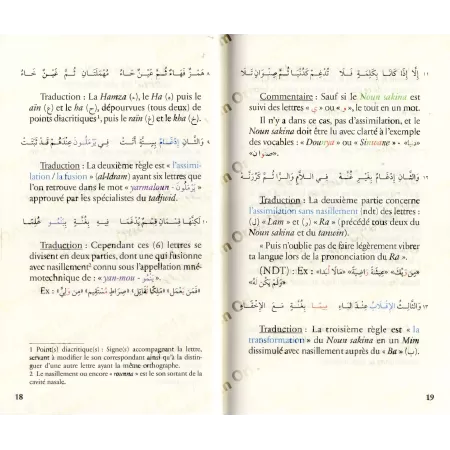 ٨ هَمْزٌ فَهَاءٌ ثُمَّ عَيْنٌ حَاءُ مُهْمَلَتَانِ ثُمَّ غَيْنٌ خَاءُ
Traduction : La Hamza (ء), le Ha (ه) puis le
aïn (ع) et le ha (ح), dépourvues (tous deux) de
points diacritiques¹, puis le raïn (غ) et le kha (خ).
٩ وَالثَّانِ إِدْغَامٌ بِسِتَّةٍ أَتَتْ فِي يَرْمَلُونَ عِنْدَهُمْ قَدْ ثَبَتَتْ
Traduction : La deuxième règle est « l'assimi-
lation / la fusion » (al-Idram) ayant six lettres que
l'on retrouve dans le mot « yarmaloun - يَرْمَلُونَ »
approuvé par les spécialistes du tadjwid.
١٠ لَكِنَّهَا قِسْمَانِ قِسْمٌ يُدْغَمَا فِيهِ بِغُنَّةٍ بِيَنْمُو عُلِمَا
Traduction : Cependant ces (6) lettres se
divisent en deux parties, dont une qui fusionne
avec nasillement² connu sous l'appellation mné-
motechnique de : « yan-mou - يَنْمُو ».
1 Point(s) diacritique(s) : Signe(s) accompagnant la lettre,
servant à modifier le son correspondant ainsi qu'à la distin-
guer d'une autre lettre ayant la même orthographe.
2 Le nasillement ou encore « rounna » est le son sortant de la
cavité nasale.
18
١١ إِلَّا إِذَا كَانَا بِكِلْمَةٍ فَلَا تُدْغِمْ كَدُنْيَا ثُمَّ صِنْوَانٍ تَلَا
Commentaire : Sauf si le Noun sakina est
suivi des lettres « ي » ou « و », le tout en un mot.
Il n'y a dans ce cas, pas d'assimilation, et le
Noun sakina doit être lu avec clarté à l'exemple
des vocables : « Dounya » ou « Sinwane »
١٢ وَالثَّانِ إِدْغَامٌ بِغَيْرِ غُنَّهْ فِي اللَّامِ وَالرَّا ثُمَّ كَرِّرَنَّهْ
Traduction : La deuxième partie concerne
l'assimilation sans nasillement (ndt) des lettres :
(ل) « Lam » et (ر) « Ra » (précédé tous deux du
Noun sakina et du tanwin).
« Puis n'oublie pas de faire légèrement vibrer
ta langue lors de la prononciation du Ra ».
١٣ وَالثَّالِثُ الْإِقْلَابُ عِنْدَ الْبَاءِ مِيمًا بِغُنَّةٍ مَعَ الْإِخْفَاءِ
Traduction : La troisième règle est « la
transformation » du Noun sakina en un Mim
dissimulé avec nasillement auprès du « Ba » (ب).
19